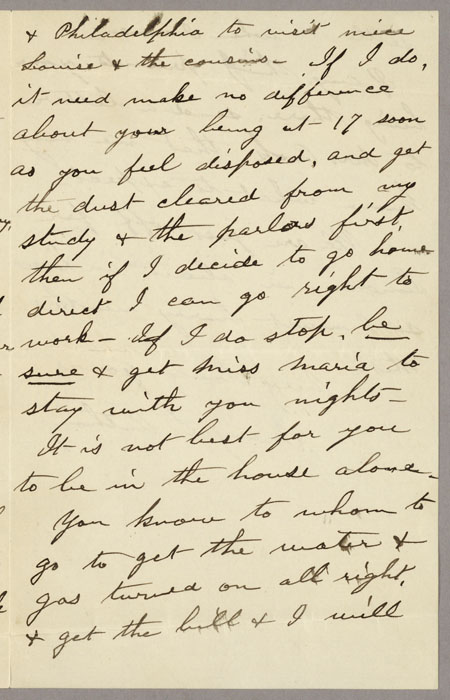 & Philadelphia to visit niece
Louise & the cousins - If I do,
it need make no difference
about your being at 17 soon
as you feel disposed, and get
the dust cleared from my
study & the parlors first,
then if I decide to go home
direct I can go right to
work - If I do stop, be
sure & get Miss Maria to
stay with you nights -
It is not best for you
to be in the house alone -
You know to whom to
go to get the water &
gas turned on all right,
& get the bill & I will